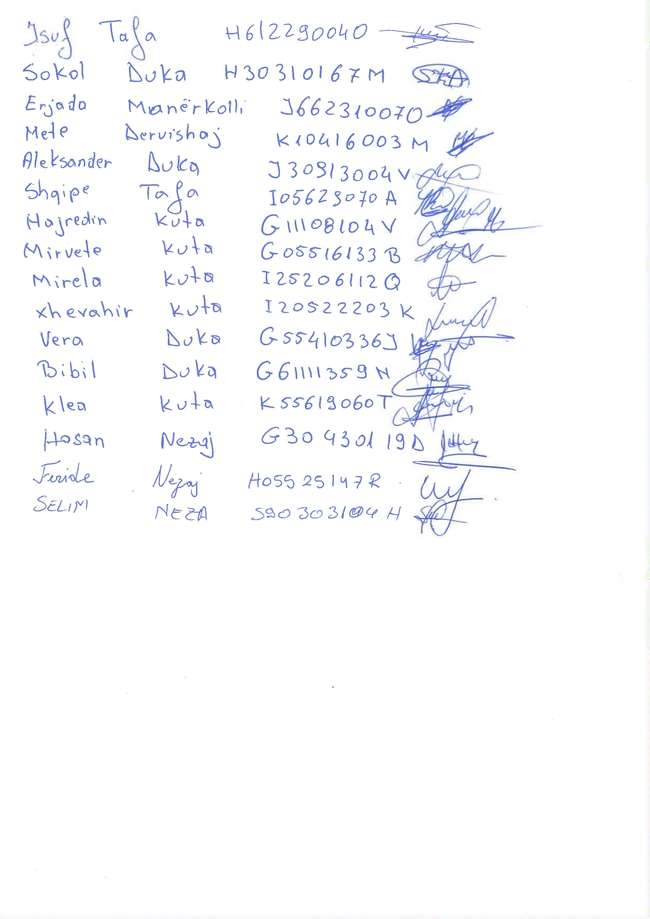 Isuf Tafa H61229004O
Sokol Duka H30310167M
Erjado Manërkolli J66231007O
Mete Dervishaj K10416003M
Aleksander Duka J30913004V
Shqipe Tafa I05623070A
Hajredin Kuta G11108104V
Mirvete Kuta G05516133B
Mirela Kuta I25206112Q
xhevahir Kuta I20522203K
Vera Duka G55410336J
Bibil Duka G61111359N
Klea Kuta K55619060T
Hasan Nezaj G30430119D
Feride Nezaj H05525147R
SELIM NEZA H